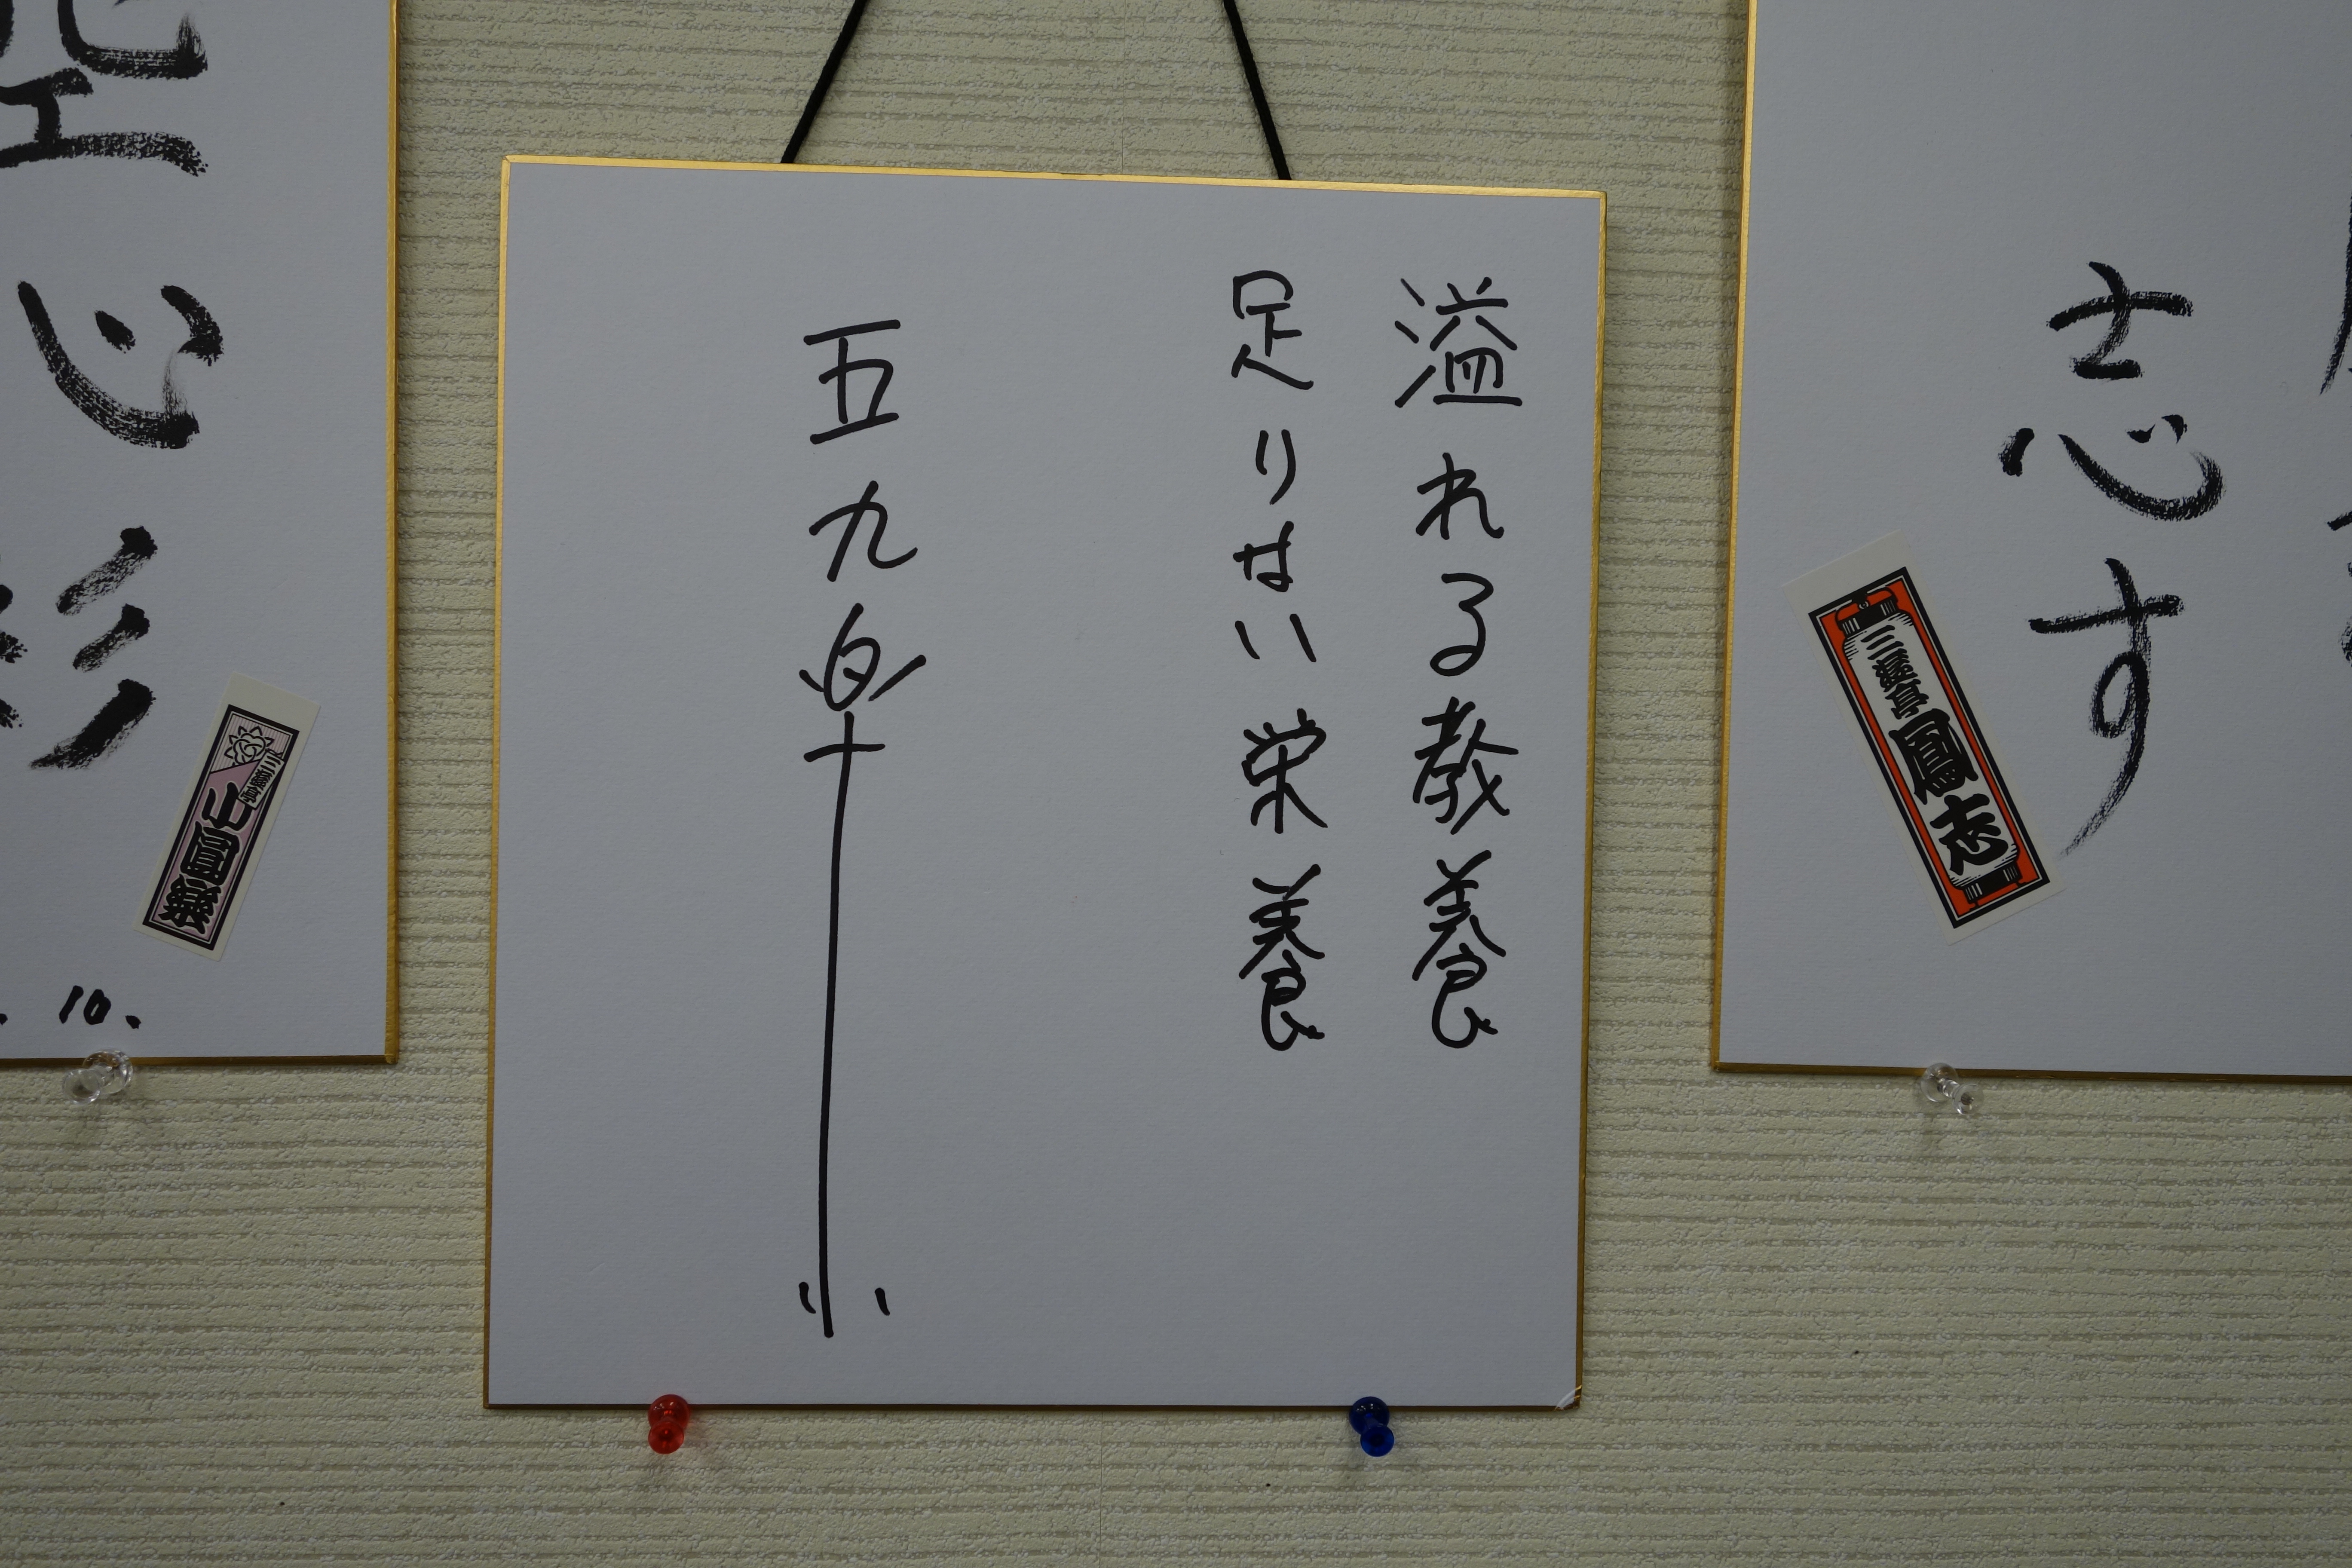 志す
三遊亭
鳳志
溢れる教養
足りない栄養
五九楽
心
三遊亭
10.